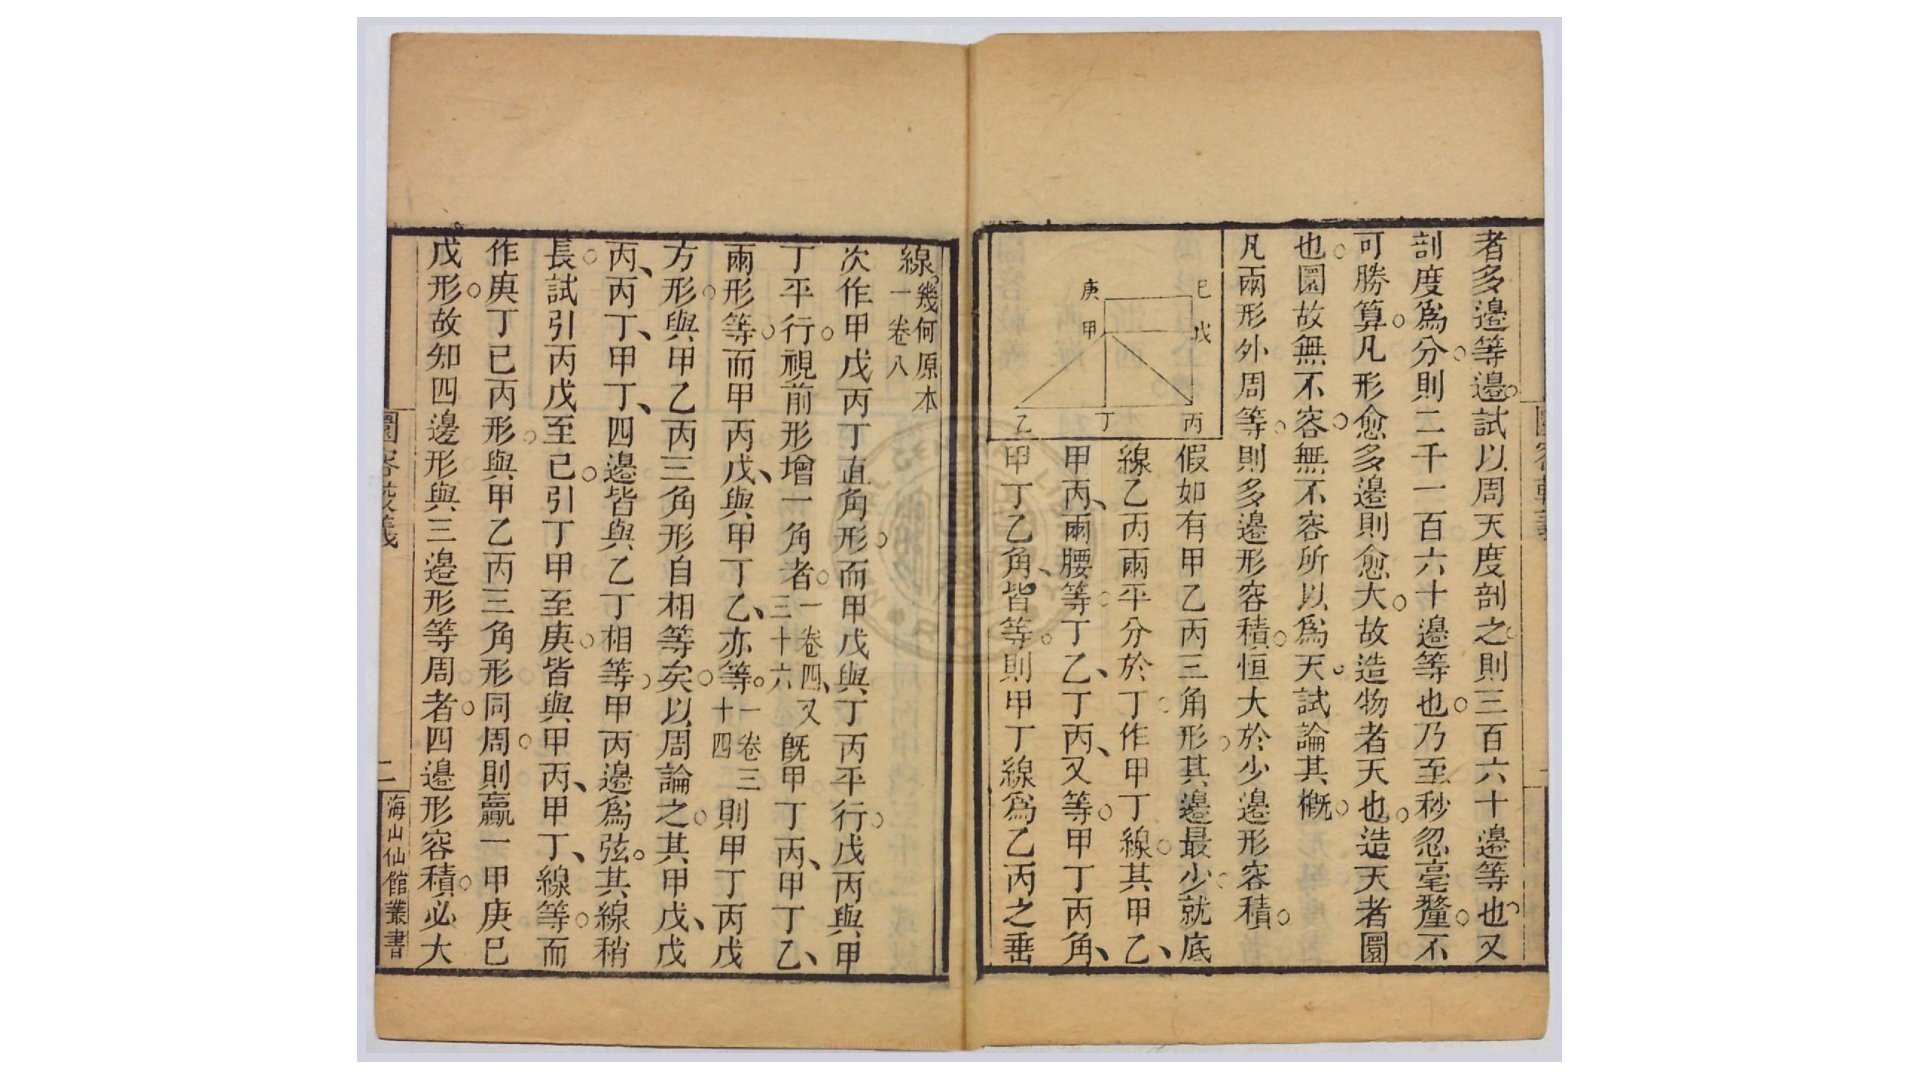 者多邉等邉試以周天度剖之則三百六十邉等也又
剖度爲分則二千一百六十邉等也乃至秒忽毫釐不
可勝算凡形愈多邉則愈大故造物者天也造天者圜
也圜故無不容無不容所以爲天試論其概
凡兩形外周等則多邉形容積恒大於少邉形容積
巳
戊
庚
甲
乙
丁
丙
假如有甲乙丙三角形其邉最少就底
線乙丙兩平分於丁作甲丁線其甲乙、
甲丙、兩腰等丁乙、丁丙、又等甲丁丙角、
甲丁乙角、皆等則甲丁線爲乙丙之垂
線幾何原本
一卷八
次作甲戊丙丁直角形而甲戊與丁丙平行戊丙與甲
丁平行視前形增一角者一卷四、又
三十六
既甲丁丙、甲丁乙、
兩形等而甲丙戊、與甲丁乙、亦等一卷三
十四
則甲丁丙戊
方形與甲乙丙三角形自相等矣以周論之其甲戊、戊
丙、丙丁、甲丁、四邉皆與乙丁相等甲丙邉爲弦其線稍
長試引丙戊至巳引丁甲至庚皆與甲丙、甲丁、線等而
作庚丁巳丙形與甲乙丙三角形同周則贏一甲庚巳
戊形故知四邉形與三邉形等周者四邉形容積必大
圜容較義
二
海山仙館叢書